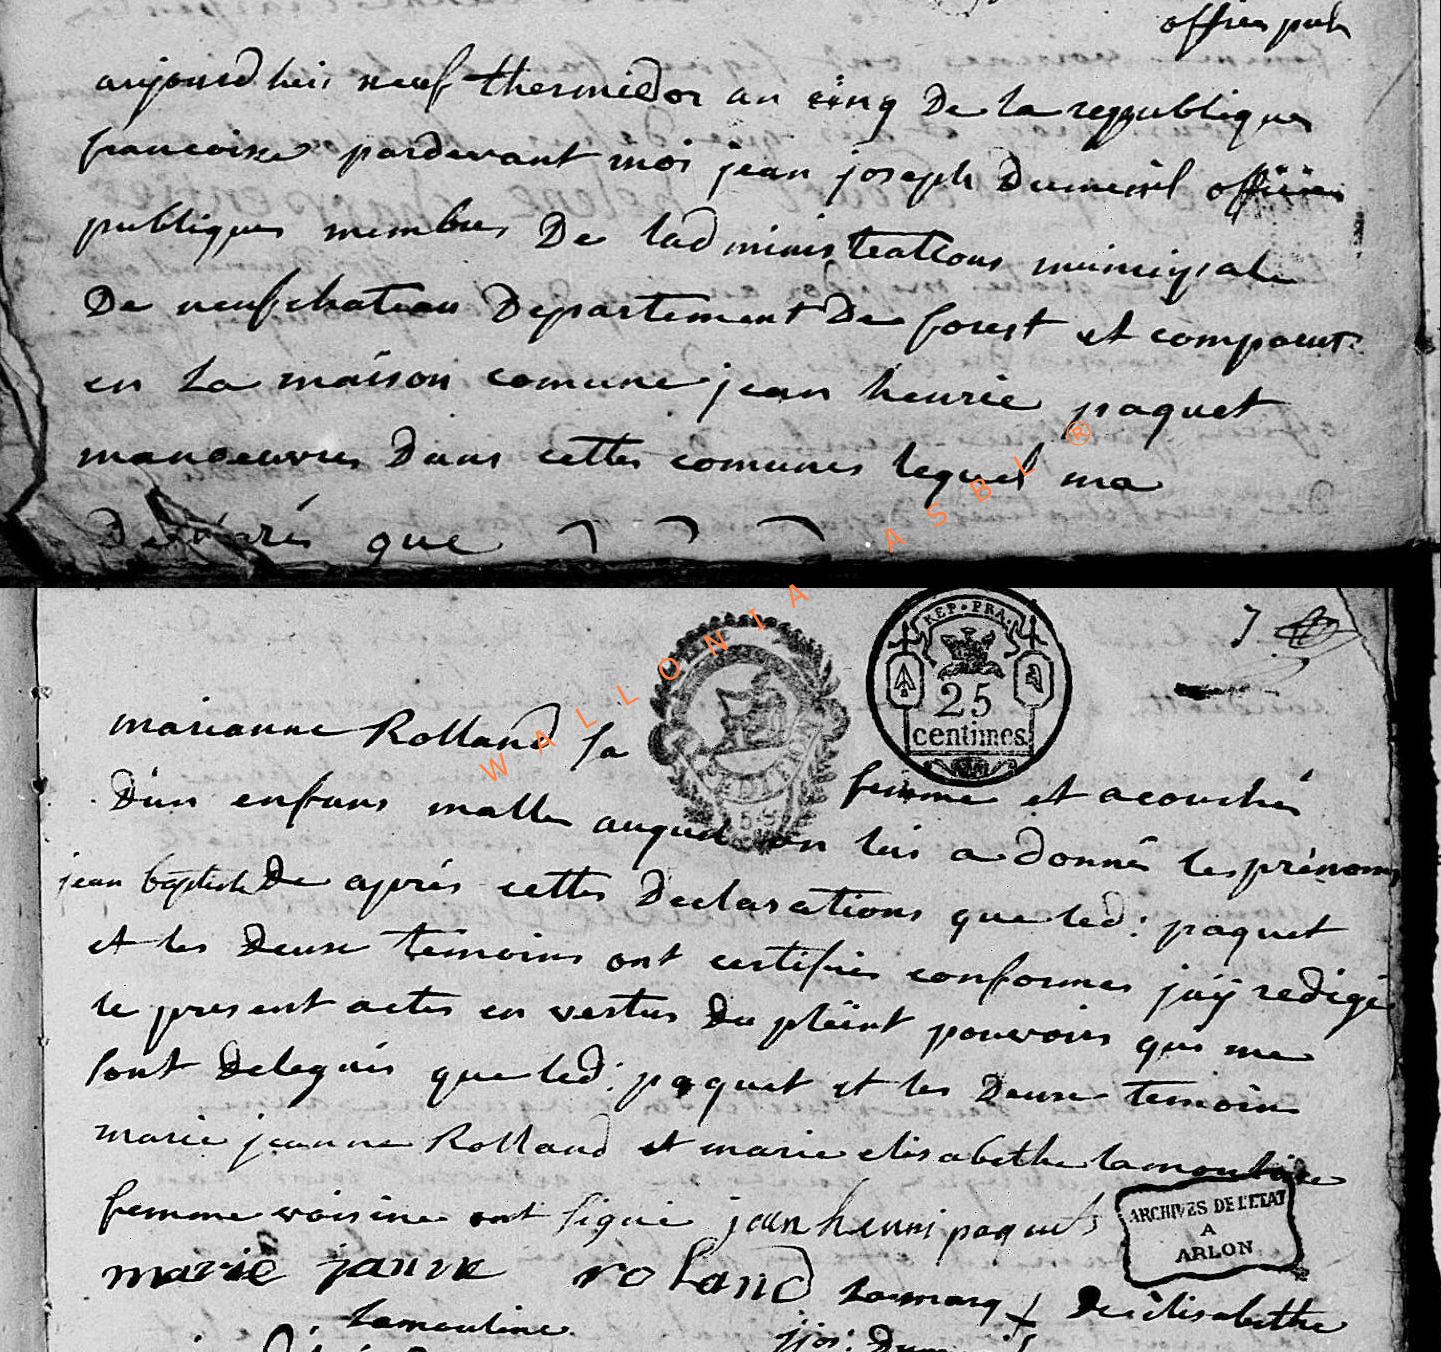 offier pub
aujourdhuis neuf thermidor an cinq De la reppublique
francoise pardevant moi jean joseph Dumenil officier
publiques membres De ladministrations municipale
De neufchateau Departement De forest et comparut
en La maison comune jean henrie paquet
manoeuvres Dans cettes comunes lequel ma
Declarés que
REP. FRA.
25
centimes
marianne Rolland sa
femme et acouchés
D'un enfans malle auquel on luis a donnés les prénoms
jean baptiste De aprés cettes Declarations que led: paquet
et les Deuse temoins ont certifiés conformes jaÿ redigé
le present actes en vertus Du pleint pouvoirs qui me
sont Delegués que led: paquet et les Deuse temoins
marie jeanne Rolland et marie elisabethe lamouline
femme voisine ont signé jean henni paquet
ARCHIVES DE L'ETAT
A
ARLON
marie janne roland La marq + De élisabethe
Lamouline
jjos: Dumenil
WALLONIA ASBL ®